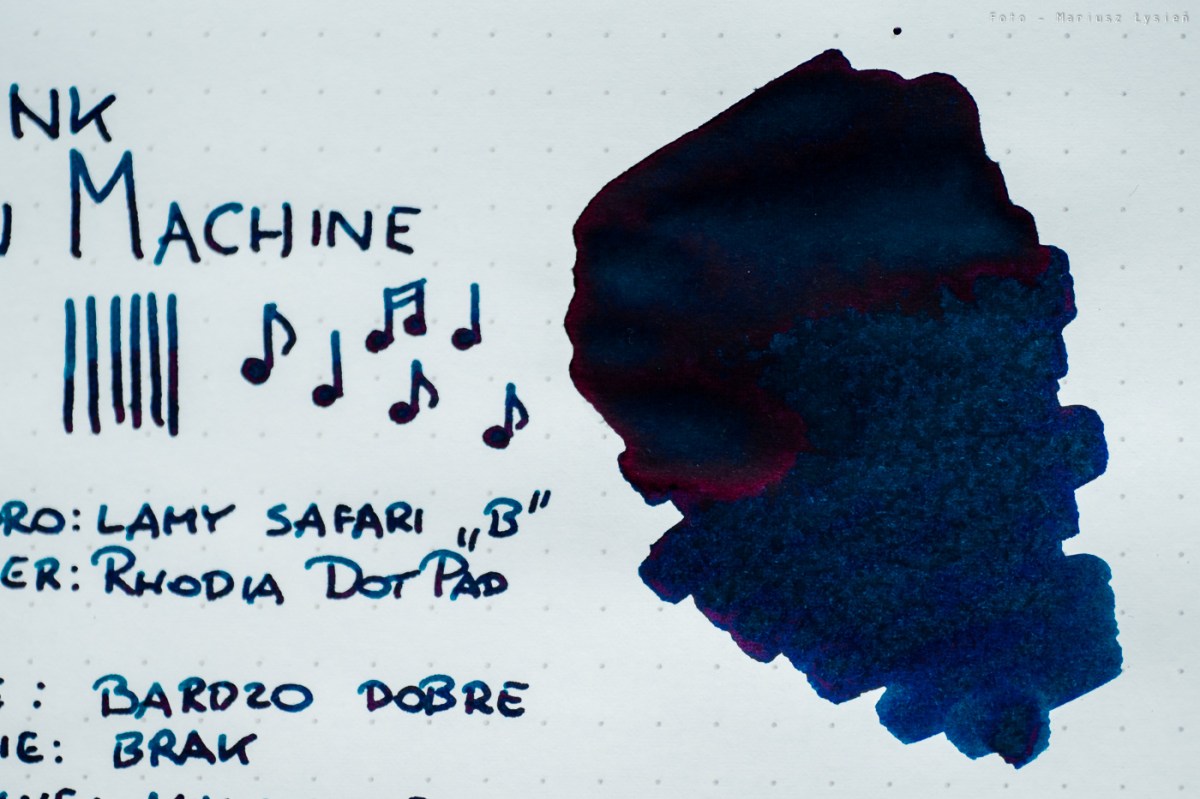 Foto - Mariusz Łysień
NK
MACHINE
RO: LAMY SAFARI „B”
ER: RHODIA DOTPAD
E: BARDZO DOBRE
IE: BRAK